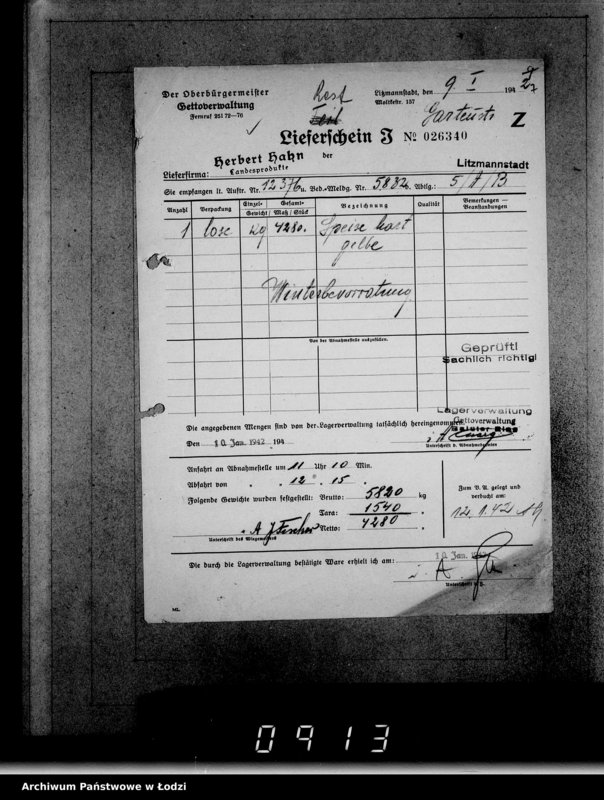 Der Oberbürgermeister
Gettoverwaltung
Fernruf 251 72—76
Rest
Teil
Litzmannstadt, den 9 I 1942
Moltkestr. 157
Z
Lieferschein J № 026340
Lieferfirma: Herbert Hahn der Litzmannstadt
Landesprodukte
Sie empfangen lt. Auftr. Nr. 12376 u. Bed.-Meldg. Nr. 5832 Abtlg.: 5/A/B
Anzahl Verpackung Einzel- Gewicht Gesamt- Maß / Stück Bezeichnung Qualität Bemerkungen — Beanstandungen
1 lose kg 4280. Speisekart
gelbe
Winterbevorratung
Von der Abnahmestelle auszufüllen.
Geprüft!
Sachlich richtig!
Lagerverwaltung
Gettoverwaltung
Die angegebenen Mengen sind von der Lagerverwaltung tatsächlich hereingenommen.
Den 10. Jan. 1942 194
Unterschrift d. Abnahmebeamten
Anfahrt an Abnahmestelle um 11 Uhr 10 Min.
Abfahrt von " " 12 " 15 "
Folgende Gewichte wurden festgestellt: Brutto: 5820 kg
Tara: 1540 "
A J Fischer Netto: 4280 "
Unterschrift des Wiegemeisters
Zum V. A. gelegt und
verbucht am:
12.1.42
Die durch die Lagerverwaltung bestätigte Ware erhielt ich am: 10. Jan. 1942
ML
0913
Archiwum Państwowe w Łodzi